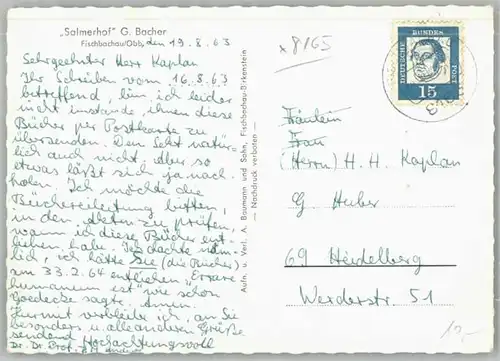 „Salmerhof" G. Bacher
Fischbachau/Obb, den 19.8.63
Sehrgeehrter Herr Kaplan
Ihr Schreiben vom 16.8.63
betreffend, bin ich leider
nicht imstande, ihnen diese
Bücher per Postkarte zu
übersenden. Den Sekt natür-
lich auch nicht. Aber so
etwas läßt sich ja nach-
holen. Ich möchte die
Büchereileitung bitten,
in den Akten zu prüfen,
wann ich diese Bücher ent-
liehen habe. Ich dachte näm-
lich, ich hätte Sie (die Bücher)
am 33.2.64 entliehen. „Errare
humanum est" wie schon
Goedecke sagte. Amen.
Hiermit verbleibe ich, an Sie
besonders u. alle anderen Grüße
sendend Hochachtungsvoll
Dr. Dr. Prof.
Aufn. u. Verl. A. Baumann und Sohn, Fischbachau-Birkenstein
— Nachdruck verboten —
x 8165
DEUTSCHE BUNDES POST
15
Fräulein
Frau
(Herrn) H. H. Kaplan
G Huber
69 Heidelberg
Werderstr. 51
10,-